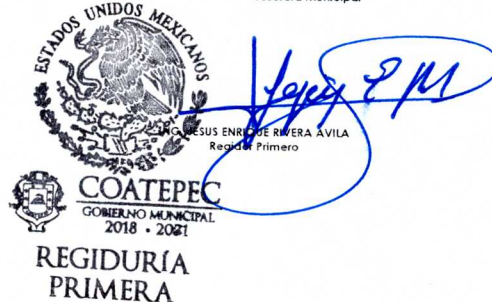 ESTADOS UNIDOS MEXICANOS
ING. JESUS ENRIQUE RIVERA AVILA
Regidor Primero
COATEPEC
GOBIERNO MUNICIPAL
2018 • 2021
REGIDURÍA
PRIMERA